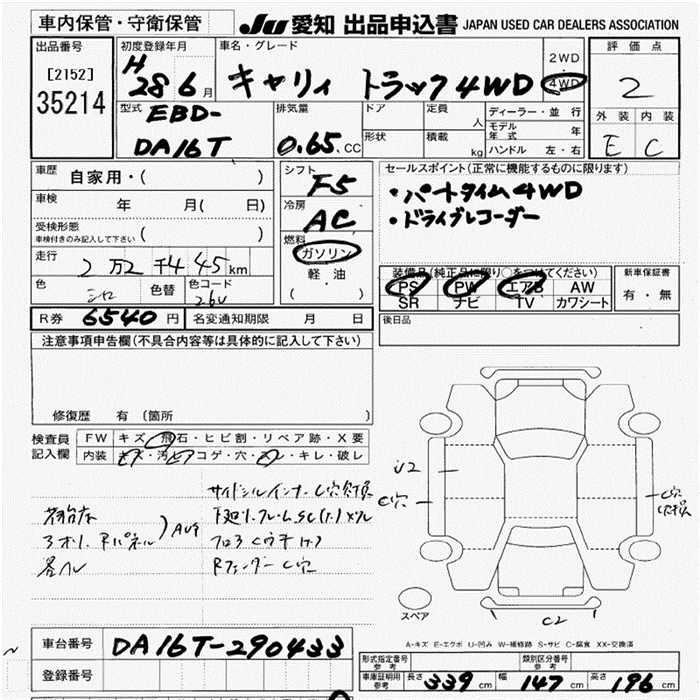 車内保管・守衛保管 JU 愛知 出品申込書 JAPAN USED CAR DEALERS ASSOCIATION
出品番号
[2152]
35214
初度登録年月
H 28 6 月
車名・グレード
キャリィ トラック4WD
2WD
・
4WD
評価点
2
外装 内装
E C
型式
EBD-
DA16T
排気量
0.65 CC
ドア
定員
人
形状
積載
kg
ディーラー・並行
モデル
年式 年
ハンドル 左・右
車歴
自家用・( )
車検
年 月( 日)
受検形態
車検付きのみ記入して下さい ( )
走行
2万2千445km
色
シロ
色替
色コード
26U
シフト
F5
冷房
AC
燃料
ガソリン
軽油
( )
セールスポイント(正常に機能するものに限ります)
・パートタイム4WD
・ドライブレコーダー
装備品(純正品に限り○をつけてください)
PS PW エアB AW
SR ナビ TV カワシート
新車保証書
有・無
R券 6540 円 名変通知期限 月 日
後日品
注意事項申告欄(不具合内容等は具体的に記入して下さい)
修復歴 有 (箇所 )
検査員
記入欄
FW キズ・飛石・ヒビ割・リペア跡・X要
内装 キズ・汚・コゲ・穴・スレ・キレ・破レ
サイドシルインナーC穴欠損
下廻り.フレームSC(ナ)
フロア
Rフェンダー C穴
Rパネル
AUS
U2
C穴
C穴
C穴欠損
C2
スペア
A-キズ E-エクボ U-凹み W-補修跡 S-サビ C-腐食 XX-交換済
車台番号 DA16T-290433
登録番号
形式指定番号
参考
類別区分番号
参考
車庫証明用
参考
長さ 339 cm 幅 147 cm 高さ 196 cm